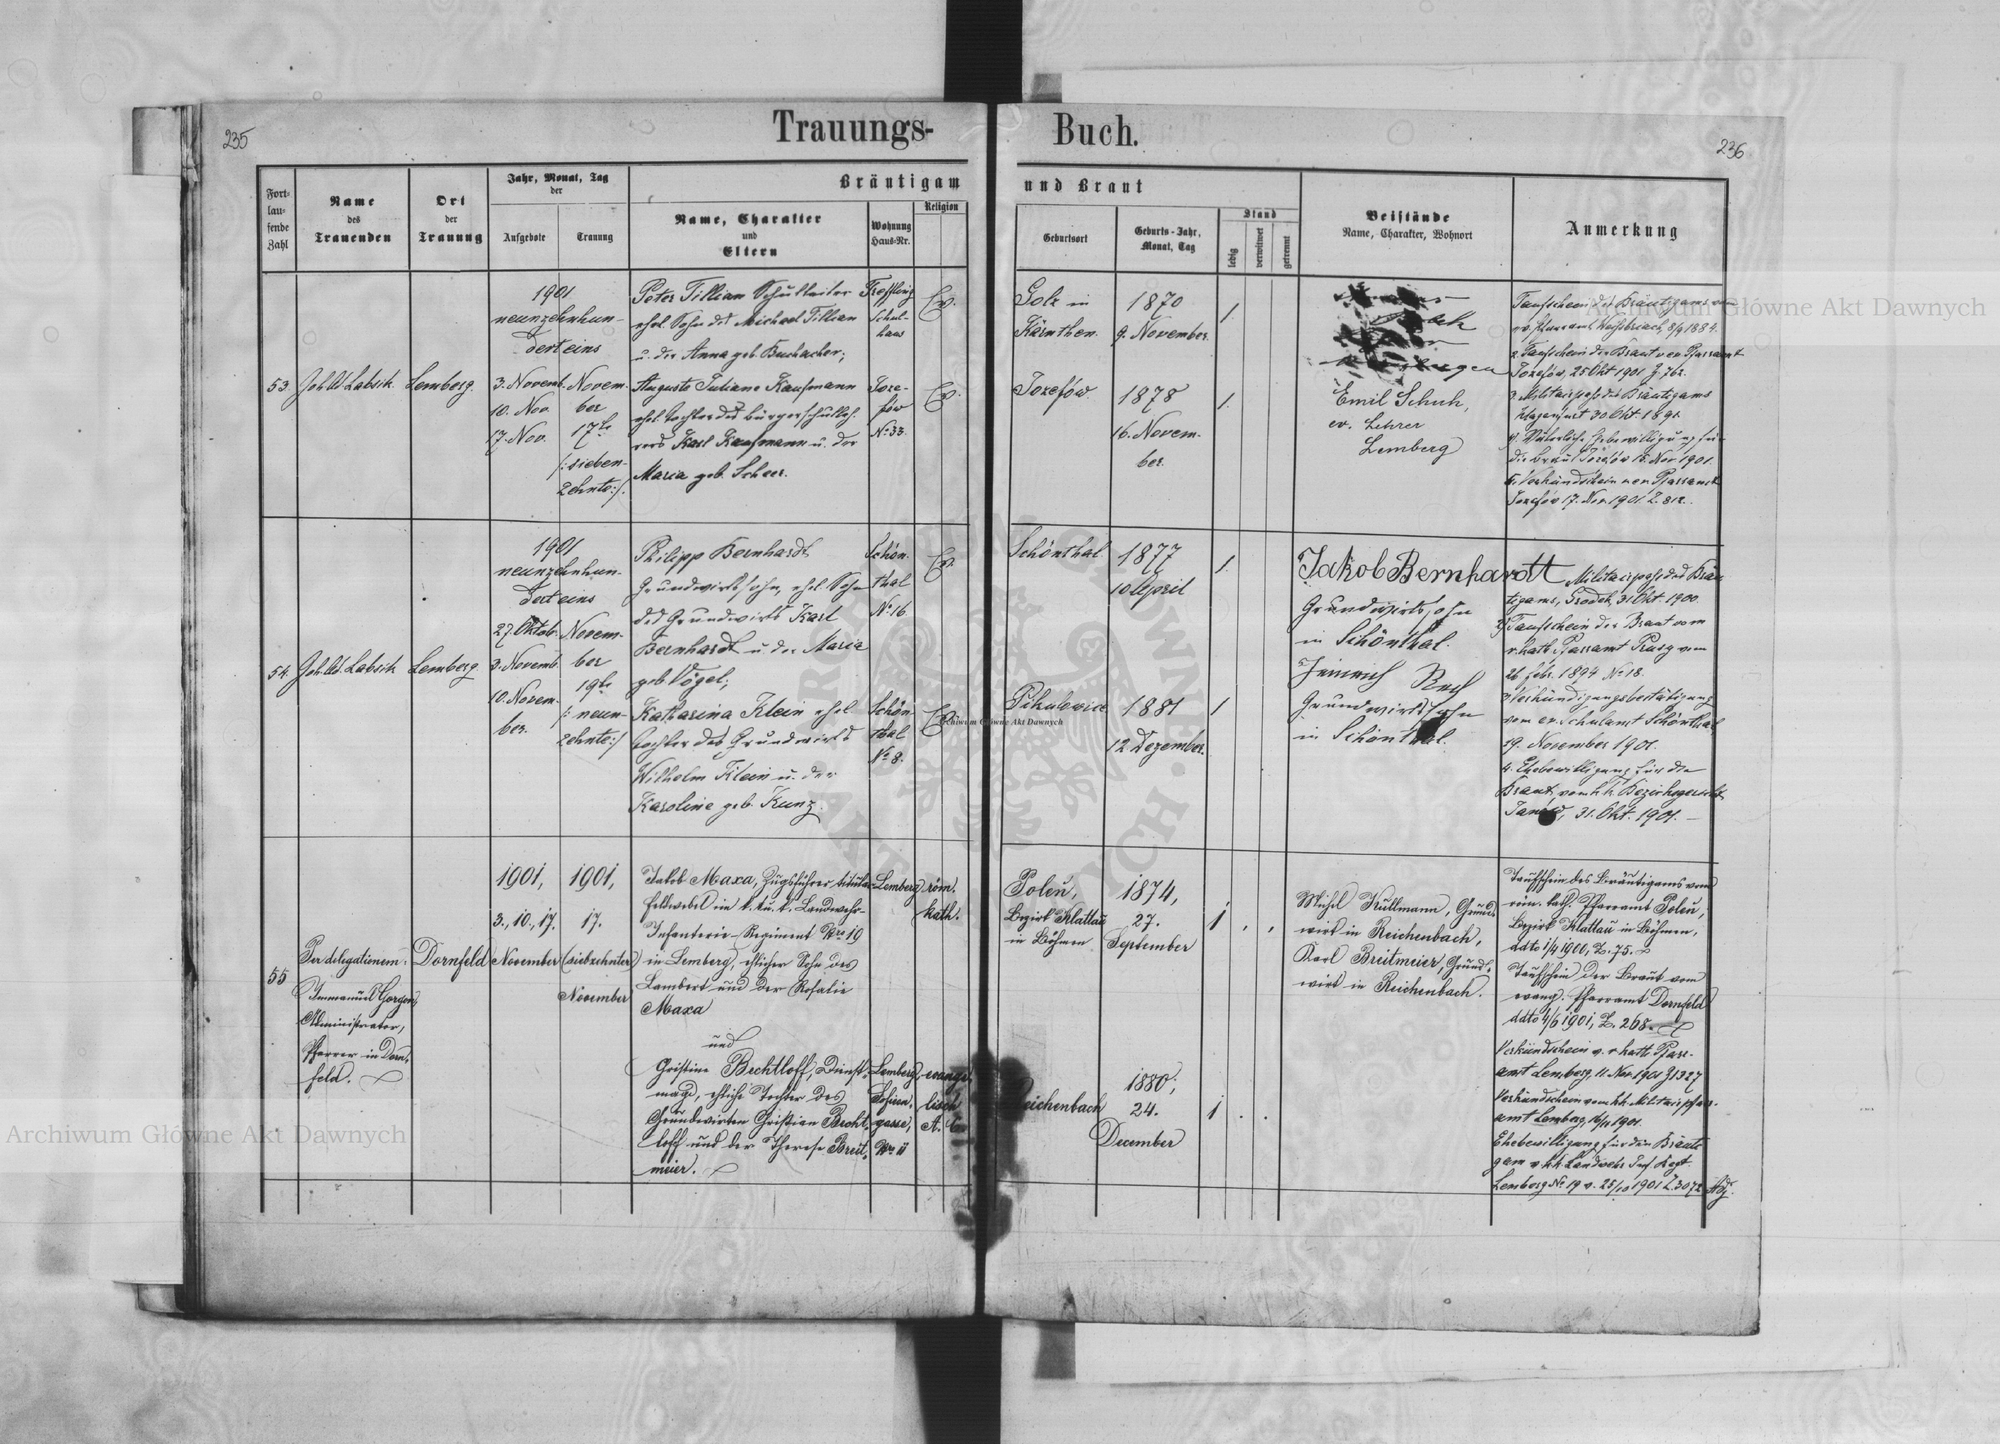 235
Trauungs-
Buch.
236
Fort-
lau-
fende
Zahl
Name
des
Trauenden
Ort
der
Trauung
Jahr, Monat, Tag
der
Aufgebote
Trauung
Bräutigam
Name, Charakter
und
Eltern
Wohnung
Haus-Nr.
Religion
und Braut
Geburtsort
Geburts-Jahr,
Monat, Tag
Stand
ledig
verwitwet
getrennt
Beistände
Name, Charakter, Wohnort
Anmerkung
53.
Joh. Labsik
Lemberg.
1901
neunzehnhun-
dert eins
3. Novemb.
10. Nov.
17. Nov.
Novem-
ber
17te
/:sieben-
zehnte:/
Peter Tillian Schulleiter
ehel. Sohn des Michael Tillian
u. der Anna geb. Buchacher;
Augusta Juliane Kaufmann
ehel. Tochter des Bürgerschulleh-
rers Karl Kaufmann u. der
Maria geb. Scheer.
Treffling
Schul-
haus
Joze-
fów
No 33.
Ev.
Ev.
in
Kärnthen
1870
9. November
1.
Jozefów
1878
16. Novem-
ber.
1.
Emil Schuh,
ev. Lehrer
Lemberg
Taufschein des Bräutigams vom
ev. Pfarramt Weißbriach, 8/9 1884.
2. Taufschein der Braut vom Pfarramt
Jozefów, 25 Okt 1901 Z. 762.
3. Militairpass des Bräutigams
Klagenfurt 30 Okt 1891.
4. Väterliche Ehebewilligung für
die Braut Jozefów 15. Nov 1901.
5. Verkündschein vom Pfarramt
Jozefów 17. Nov 1901. Z. 812.
54.
Joh. Labsik
Lemberg.
1901
neunzehnhun-
dert eins
27. Oktob.
3. Novemb.
10. Novem-
ber.
Novem-
ber
19te
/: neun-
zehnte:/
Philipp Bernhardt
Grundwirtssohn, ehel. Sohn
des Grundwirts Karl
Bernhardt u. der Maria
geb. Vögel;
Katharina Klein ehel.
Tochter des Grundwirts
Wilhelm Klein u. der
Karoline geb. Kunz.
Schön-
thal
No 16.
Schön-
thal
No 8.
Ev.
Ev.
Schönthal
1877
10 April
1.
Pikulowice
1881
12. Dezember.
1
Jakob Bernhardt
Grundwirtssohn
in Schönthal.
Heinrich Rech
Grundwirtssohn
in Schönthal.
Militairpass des Bräu-
tigams, Grodek, 31. Okt. 1900.
2) Taufschein der Braut vom
r. kath. Pfarramt vom
26 febr. 1894 No 18.
3. Verkündigungsbestätigung
vom ev. Schulamt Schönthal
19. November 1901.
4. Ehebewilligung für die
Braut vom k.k. Bezirksgericht
31. Okt. 1901.
55
Per delegationem:
Immanuel Gorgon,
Administrator,
Pfarrer in Dorn-
feld.
Dornfeld
1901,
3., 10., 17.
November
1901,
17.
(siebzehnter)
November
Jakob Maxa, Zugsführer titular-
Feldwebel im k. k. Landwehr-
Infanterie-Regiment Nro 19
in Lemberg, ehlicher Sohn des
Lambert und der Rosalie
Maxa
und
Christine Bechtloff, Dienst-
magd, ehliche Tochter des
Grundwirten Christian Becht-
loff und der Therese Breit-
meier.
Lemberg
Lemberg,
Sofien-
gasse,
Nro 11
röm.
kath.
evange-
lisch
A. C.
Poleň,
Bezirk Klattau
in Böhmen
1874,
27.
September
1
Reichenbach
1880,
24.
December
1
Michel Kullmann, Grund-
wirt in Reichenbach,
Karl Breitmeier, Grund-
wirt in Reichenbach.
Taufschein des Bräutigams vom
röm. kath. Pfarramt Poleň,
Bezirk Klattau in Böhmen,
ddto 1/4 1900, Z. 75.
Taufschein der Braut vom
evang. Pfarramt Dornfeld
ddto 4/6 1901, Z. 268.
Verkündschein v. r. kath. Pfarr-
amt Lemberg, 11. Nov. 1901 Z 1327
Verkündschein vom k.k. Militairpfarr-
amt Lemberg, 1901.
Ehebewilligung für den Bräuti-
gam v. k.k. Landwehr Inf. Regt.
Lemberg No 19 v. 25/10 1901 Z. 3072
Archiwum Główne Akt Dawnych
Archiwum Główne Akt Dawnych
Archiwum Główne Akt Dawnych